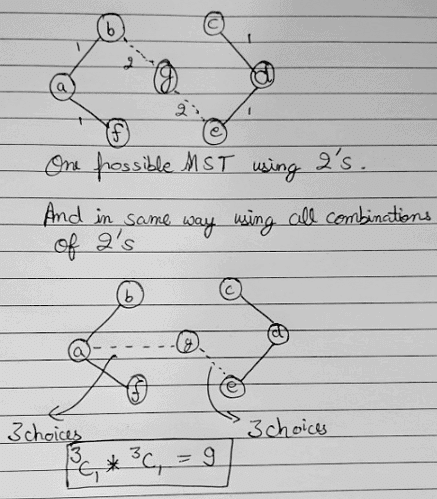 b
c
1
1
2
g
a
d
1
2
1
f
e
One possible MST using 2's.
And in same way using all combinations
of 2's
b
c
a
g
d
f
e
3 choices
3 choices
³C₁ * ³C₁ = 9